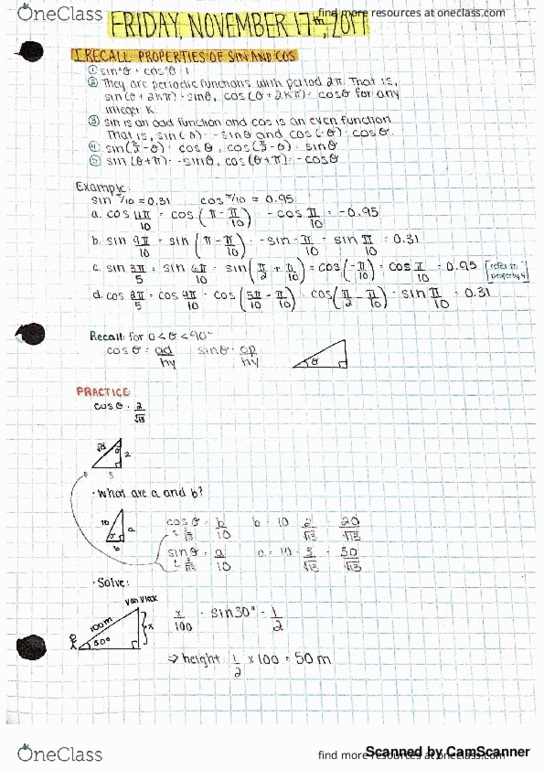 OneClass
find more resources at oneclass.com
FRIDAY, NOVEMBER 17th, 2017
I RECALL PROPERTIES OF SIN AND COS
① sin²θ + cos²θ = 1
② They are periodic functions with period 2π. That is,
sin(θ + 2Kπ) = sinθ, cos(θ + 2Kπ) = cosθ for any
integer K.
③ sin is an odd function and cos is an even function
That is, sin(-θ) = -sinθ and cos(-θ) = cosθ.
④ sin(π/2 - θ) = cosθ, cos(π/2 - θ) = sinθ
⑤ sin(θ+π) = -sinθ, cos(θ+π) = -cosθ
Example:
sin π/10 ≈ 0.31 cos π/10 ≈ 0.95
a. cos = cos(π - π/10) = -cos π/10 = -0.95
b. sin 9π/10 = sin(π - π/10) = -sin -π/10 = sin π/10 = 0.31
c. sin 3π/5 = sin 6π/10 = sin(π/2 + π/10) = cos(-π/10) = cos π/10 = 0.95 [refer to property 4]
d. cos 2π/5 = cos 4π/10 = cos(5π/10 - π/10) = cos(π/2 - π/10) = sin π/10 = 0.31
Recall: for 0 < θ < 90°
cosθ = ad/hy sinθ = op/hy
θ
PRACTICE
cosθ = 2/√13
√13 θ 2
3
· What are a and b?
10 a
b
cosθ = b/10 b = 10 2/√13 = 20/√13
↳ 2/√13
sinθ = a/10 a = 10 3/√13 = 30/√13
↳ 3/√13
· Solve:
Van Vlack
100m 30° x
x/100 = sin30° = 1/2
⇒ height = 1/2 x 100 = 50 m
OneClass
find more resources at oneclass.com
Scanned by CamScanner